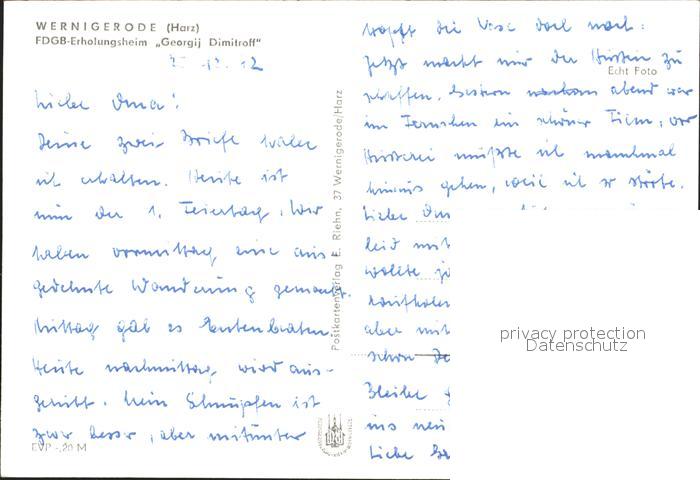 WERNIGERODE (Harz)
FDGB-Erholungsheim „Georgij Dimitroff"
25.12.72
Liebe Oma!
Deine zwei Briefe habe
ich erhalten. Heute ist
nun der 1. Feiertag. Wir
haben vormittag eine aus-
gedehnte Wanderung gemacht.
Mittag gab es Entenbraten.
Heute nachmittag wird aus-
geruht. Mein Schnupfen ist
zwar besser, aber mitunter
EVP -,20 M
Postkartenverlag E. Riehn, 37 Wernigerode/Harz
tropft die Nase doch noch.
Jetzt macht mir der Husten zu
Echt Foto
schaffen. Gestern abend war
im Fernsehen ein schöner Film, vor
Husterei mußte ich manchmal
hinaus gehen, weil ich so störte.
Liebe
leid
wollte
aber mit
schon
Bleibe
ins
Liebe
privacy protection
Datenschutz